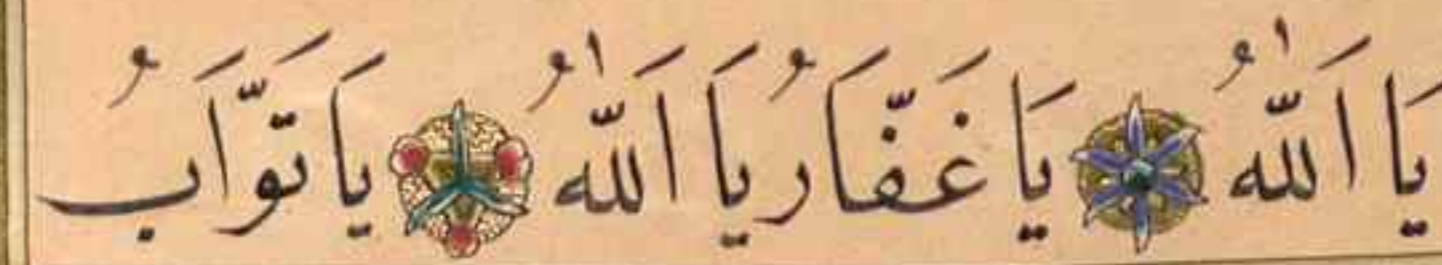 يَا اَللّٰهُ يَا غَفَّارُ يَا اَللّٰهُ يَا تَوَّابُ